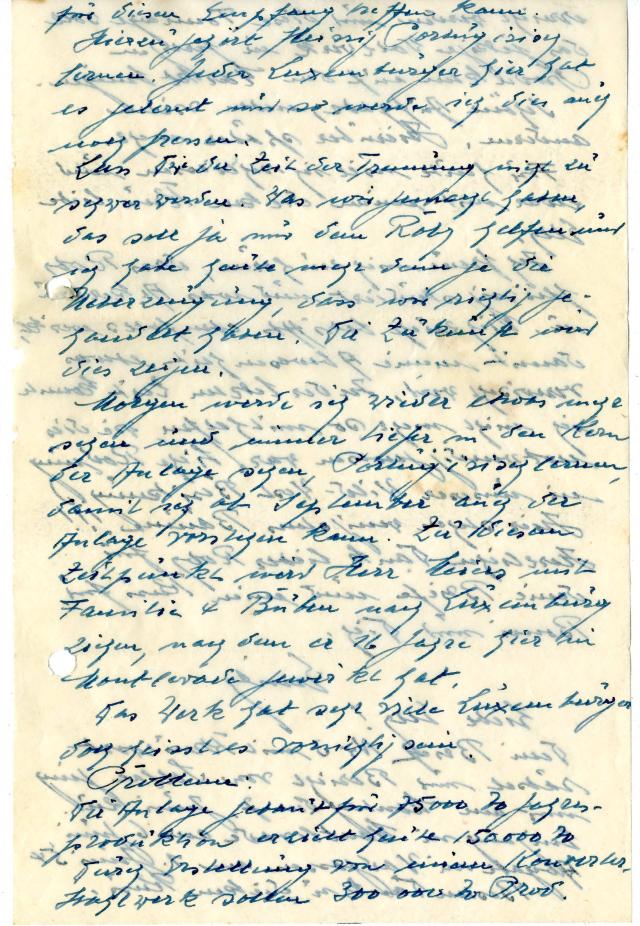 für diesen Empfang treffen kann.
Hierzu gehört fleissig Portugisisch
lernen. Jeder Luxemburger hier hat
es gelernt und so werde ich dies auch
noch fressen.
Lass Dir die Zeit der Trennung nicht zu
schwer werden. Was wir gemacht haben,
das soll ja nur dem Roby helfen und
ich habe heute mehr denn je die
Ueberzeugung, dass wir richtig ge-
handelt haben. Die Zukunft wird
dies zeigen.
Morgen werde ich wieder etwas mehr
sehen und immer tiefer in den Kern
der Anlage sehen, Portugisisch lernen,
damit ich ab September auch der
Anlage vorstehen kann. Zu diesem
Zeitpunkt wird Herr Meiers mit
Familie & Buben nach Luxemburg
ziehen, nach dem er 16 Jahre hier in
Monlevade gewirkt hat.
Das Werk hat sehr viele Luxemburger
doch heisst es vorsichtig sein.
Probleme:
Die Anlage gebaut für 75000 To Jahres-
produktion erzielt heute 150000 To
Durch Erstellung von einem Konverter-
stahlwerk sollen 300 000 To Prod.